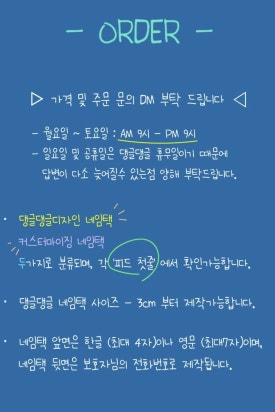 - ORDER -
▷ 가격 및 주문 문의 DM 부탁 드립니다 ◁
- 월요일 ~ 토요일 : AM 9시 - PM 9시
- 일요일 및 공휴일은 댕글댕글 휴무일이기 때문에
답변이 다소 늦어질수 있는점 양해 부탁드립니다.
• 댕글댕글디자인 네임택
커스터마이징 네임택
두가지로 분류되며, 각 '피드 첫줄' 에서 확인가능합니다.
• 댕글댕글 네임택 사이즈 - 3cm 부터 제작가능합니다.
• 네임택 앞면은 한글 (최대 4자)이나 영문 (최대7자)이며,
네임택 뒷면은 보호자님의 전화번호로 제작됩니다.